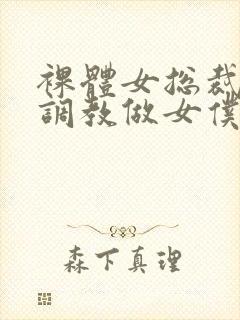 裸體女総裁
調教做女僕
森下真理